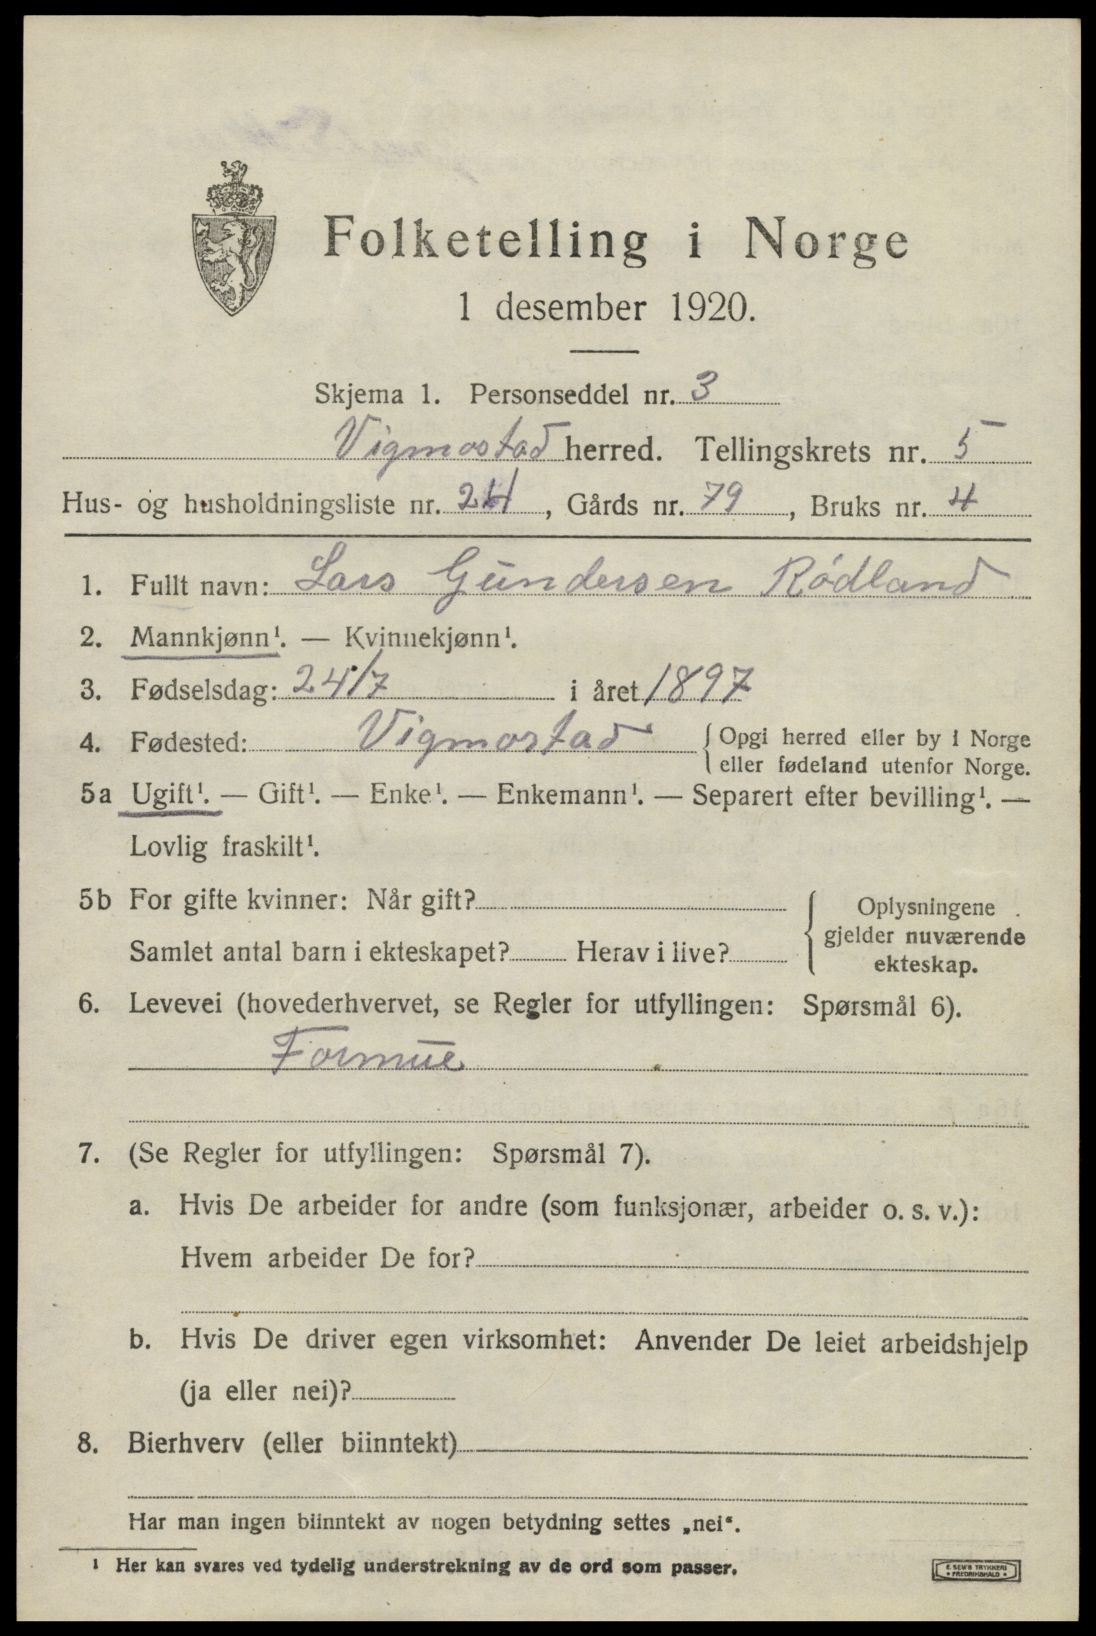 Folketelling i Norge
1 desember 1920.
Skjema 1. Personseddel nr. 3
Vigmostad herred. Tellingskrets nr. 5
Hus- og husholdningsliste nr. 24, Gårds nr. 79, Bruks nr. 4
1. Fullt navn: Lars Gundersen Rødland
2. Mannkjønn¹. — Kvinnekjønn¹.
3. Fødselsdag: 24/7 i året 1897
4. Fødested: Vigmostad { Opgi herred eller by i Norge
eller fødeland utenfor Norge.
5a Ugift¹. — Gift¹. — Enke¹. — Enkemann¹. — Separert efter bevilling¹. —
Lovlig fraskilt¹.
5b For gifte kvinner: Når gift?
Samlet antal barn i ekteskapet? Herav i live?
Oplysningene
gjelder nuværende
ekteskap.
6. Levevei (hovederhvervet, se Regler for utfyllingen: Spørsmål 6).
Formue
7. (Se Regler for utfyllingen: Spørsmål 7).
a. Hvis De arbeider for andre (som funksjonær, arbeider o. s. v.):
Hvem arbeider De for?
b. Hvis De driver egen virksomhet: Anvender De leiet arbeidshjelp
(ja eller nei)?
8. Bierhverv (eller biinntekt)
Har man ingen biinntekt av nogen betydning settes „nei“.
¹ Her kan svares ved tydelig understrekning av de ord som passer.
E. SEM'S TRYKKERI
• FREDRIKSHALD •